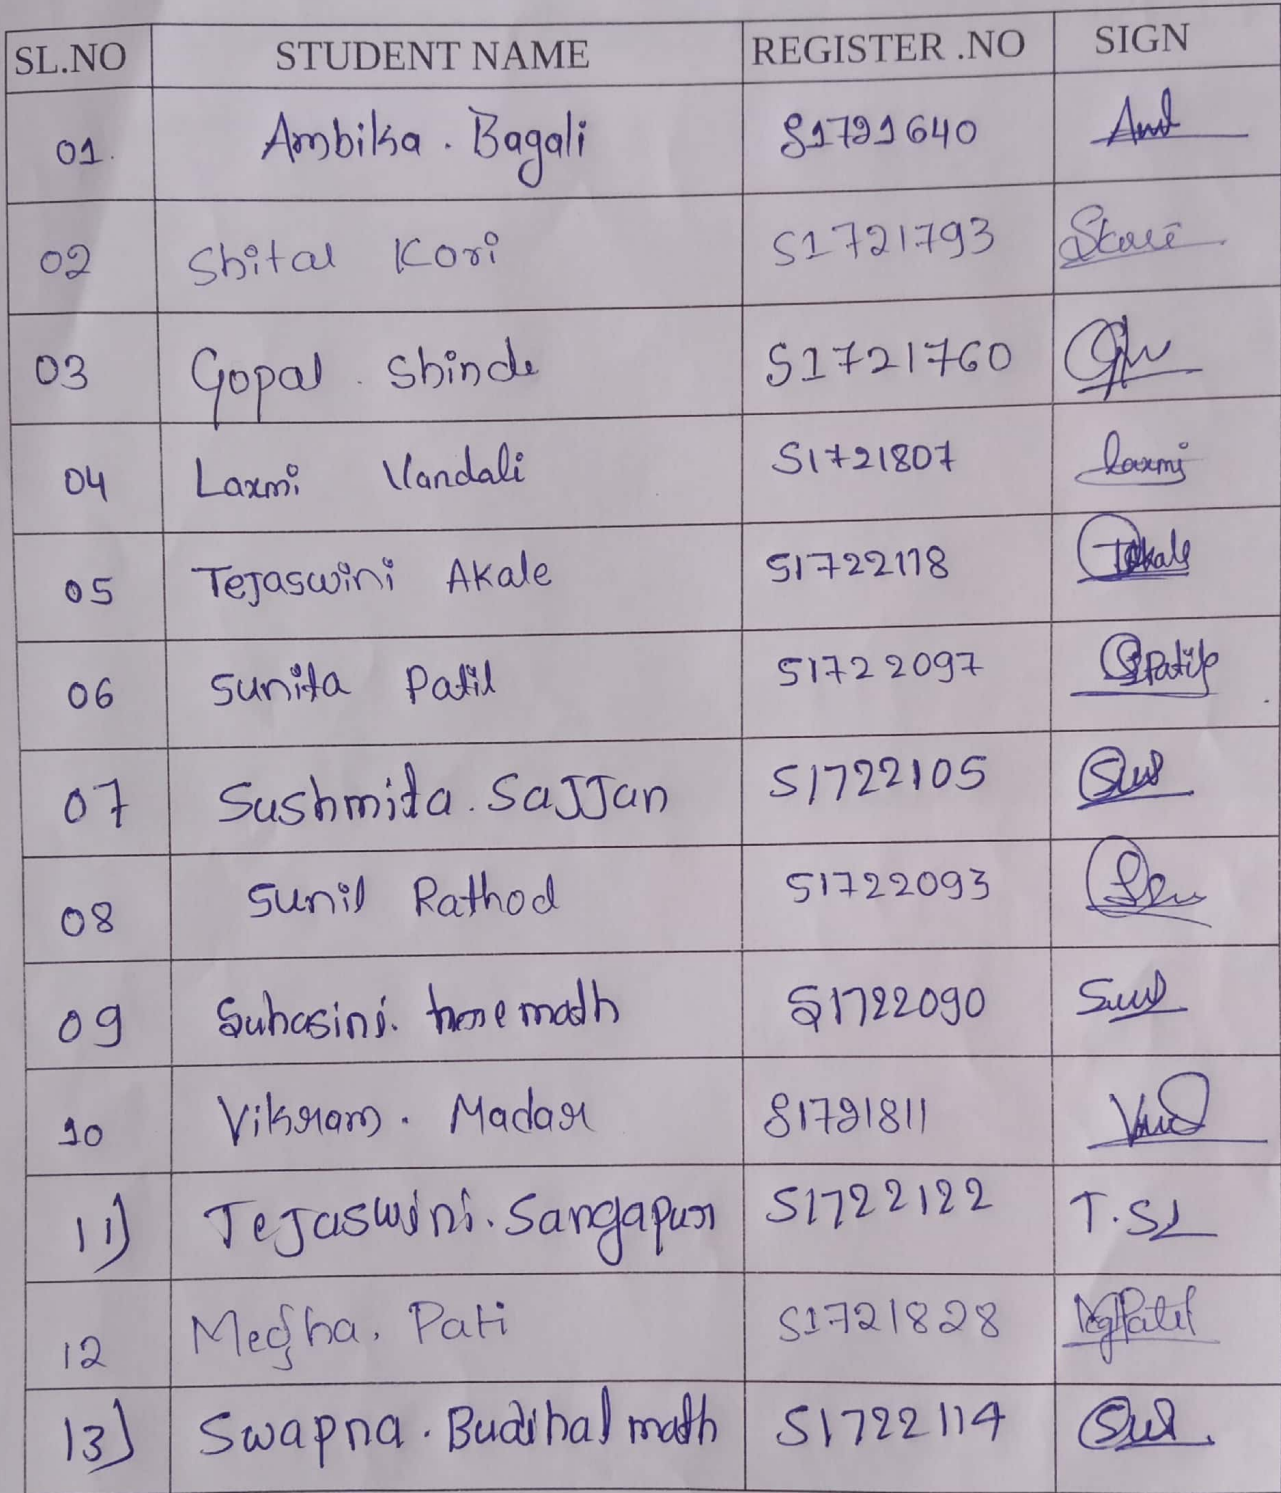 SL.NO STUDENT NAME REGISTER .NO SIGN
01. Ambika . Bagali S1721640
02 Shital Kori S1721793
03 Gopal . Shinde S1721760
04 Laxmi Vandali S1721807 laxmi
05 Tejaswini Akale S1722118
06 Sunita Patil S1722097 SPatil
07 Sushmita . Sajjan S1722105
08 Sunil Rathod S1722093
09 Suhasini. S1722090
10 Vikram . Madar S1721811
11) Tejaswini. Sangapur S1722122 T.S
12 Megha. Pati S1721828
13) Swapna . Budihal math S1722114